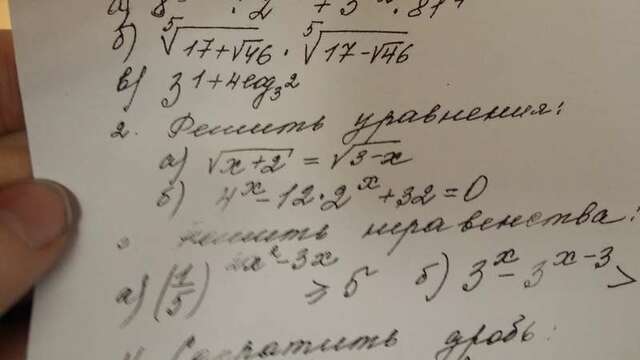 б) ⁵√(17+√46) · ⁵√(17-√46)
в) 3^(1+4log₃2)
2. Решить уравнения:
а) √(x+2) = √(3-x)
б) 4^x - 12·2^x + 32 = 0
решить неравенства:
а) (1/5)^(2x²-3x) ≥ 5 б) 3^x - 3^(x-3) >
Сократить дробь: